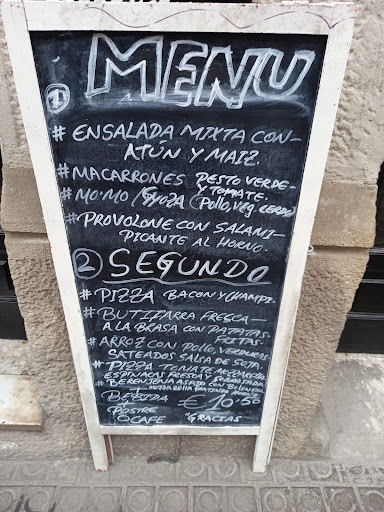 ① MENU
# ENSALADA MIXTA CON-
ATÚN Y MAIZ.
# MACARRONES PESTO VERDE-
Y TOMATE.
# MO·MO / GYOZA (Pollo, veg, cerdo
# PROVOLONE CON SALAMI-
PICANTE AL HORNO
② SEGUNDO
# PIZZA BACON Y CHAMPI-
# BUTIFARRA FRESCA-
A LA BRASA CON PATATAS-
FRITAS-
# ARROZ CON Pollo, VERDURAS
SATEADOS SALSA DE SOJA.
# PIZZA TOMATE MOZZARELLA
ESPINACAS FRESCA Y
# BERENJENA ASADO CON
MOZZARELLA
BEBIDA € 10'50
+
POSTRE
O CAFE "GRACIAS